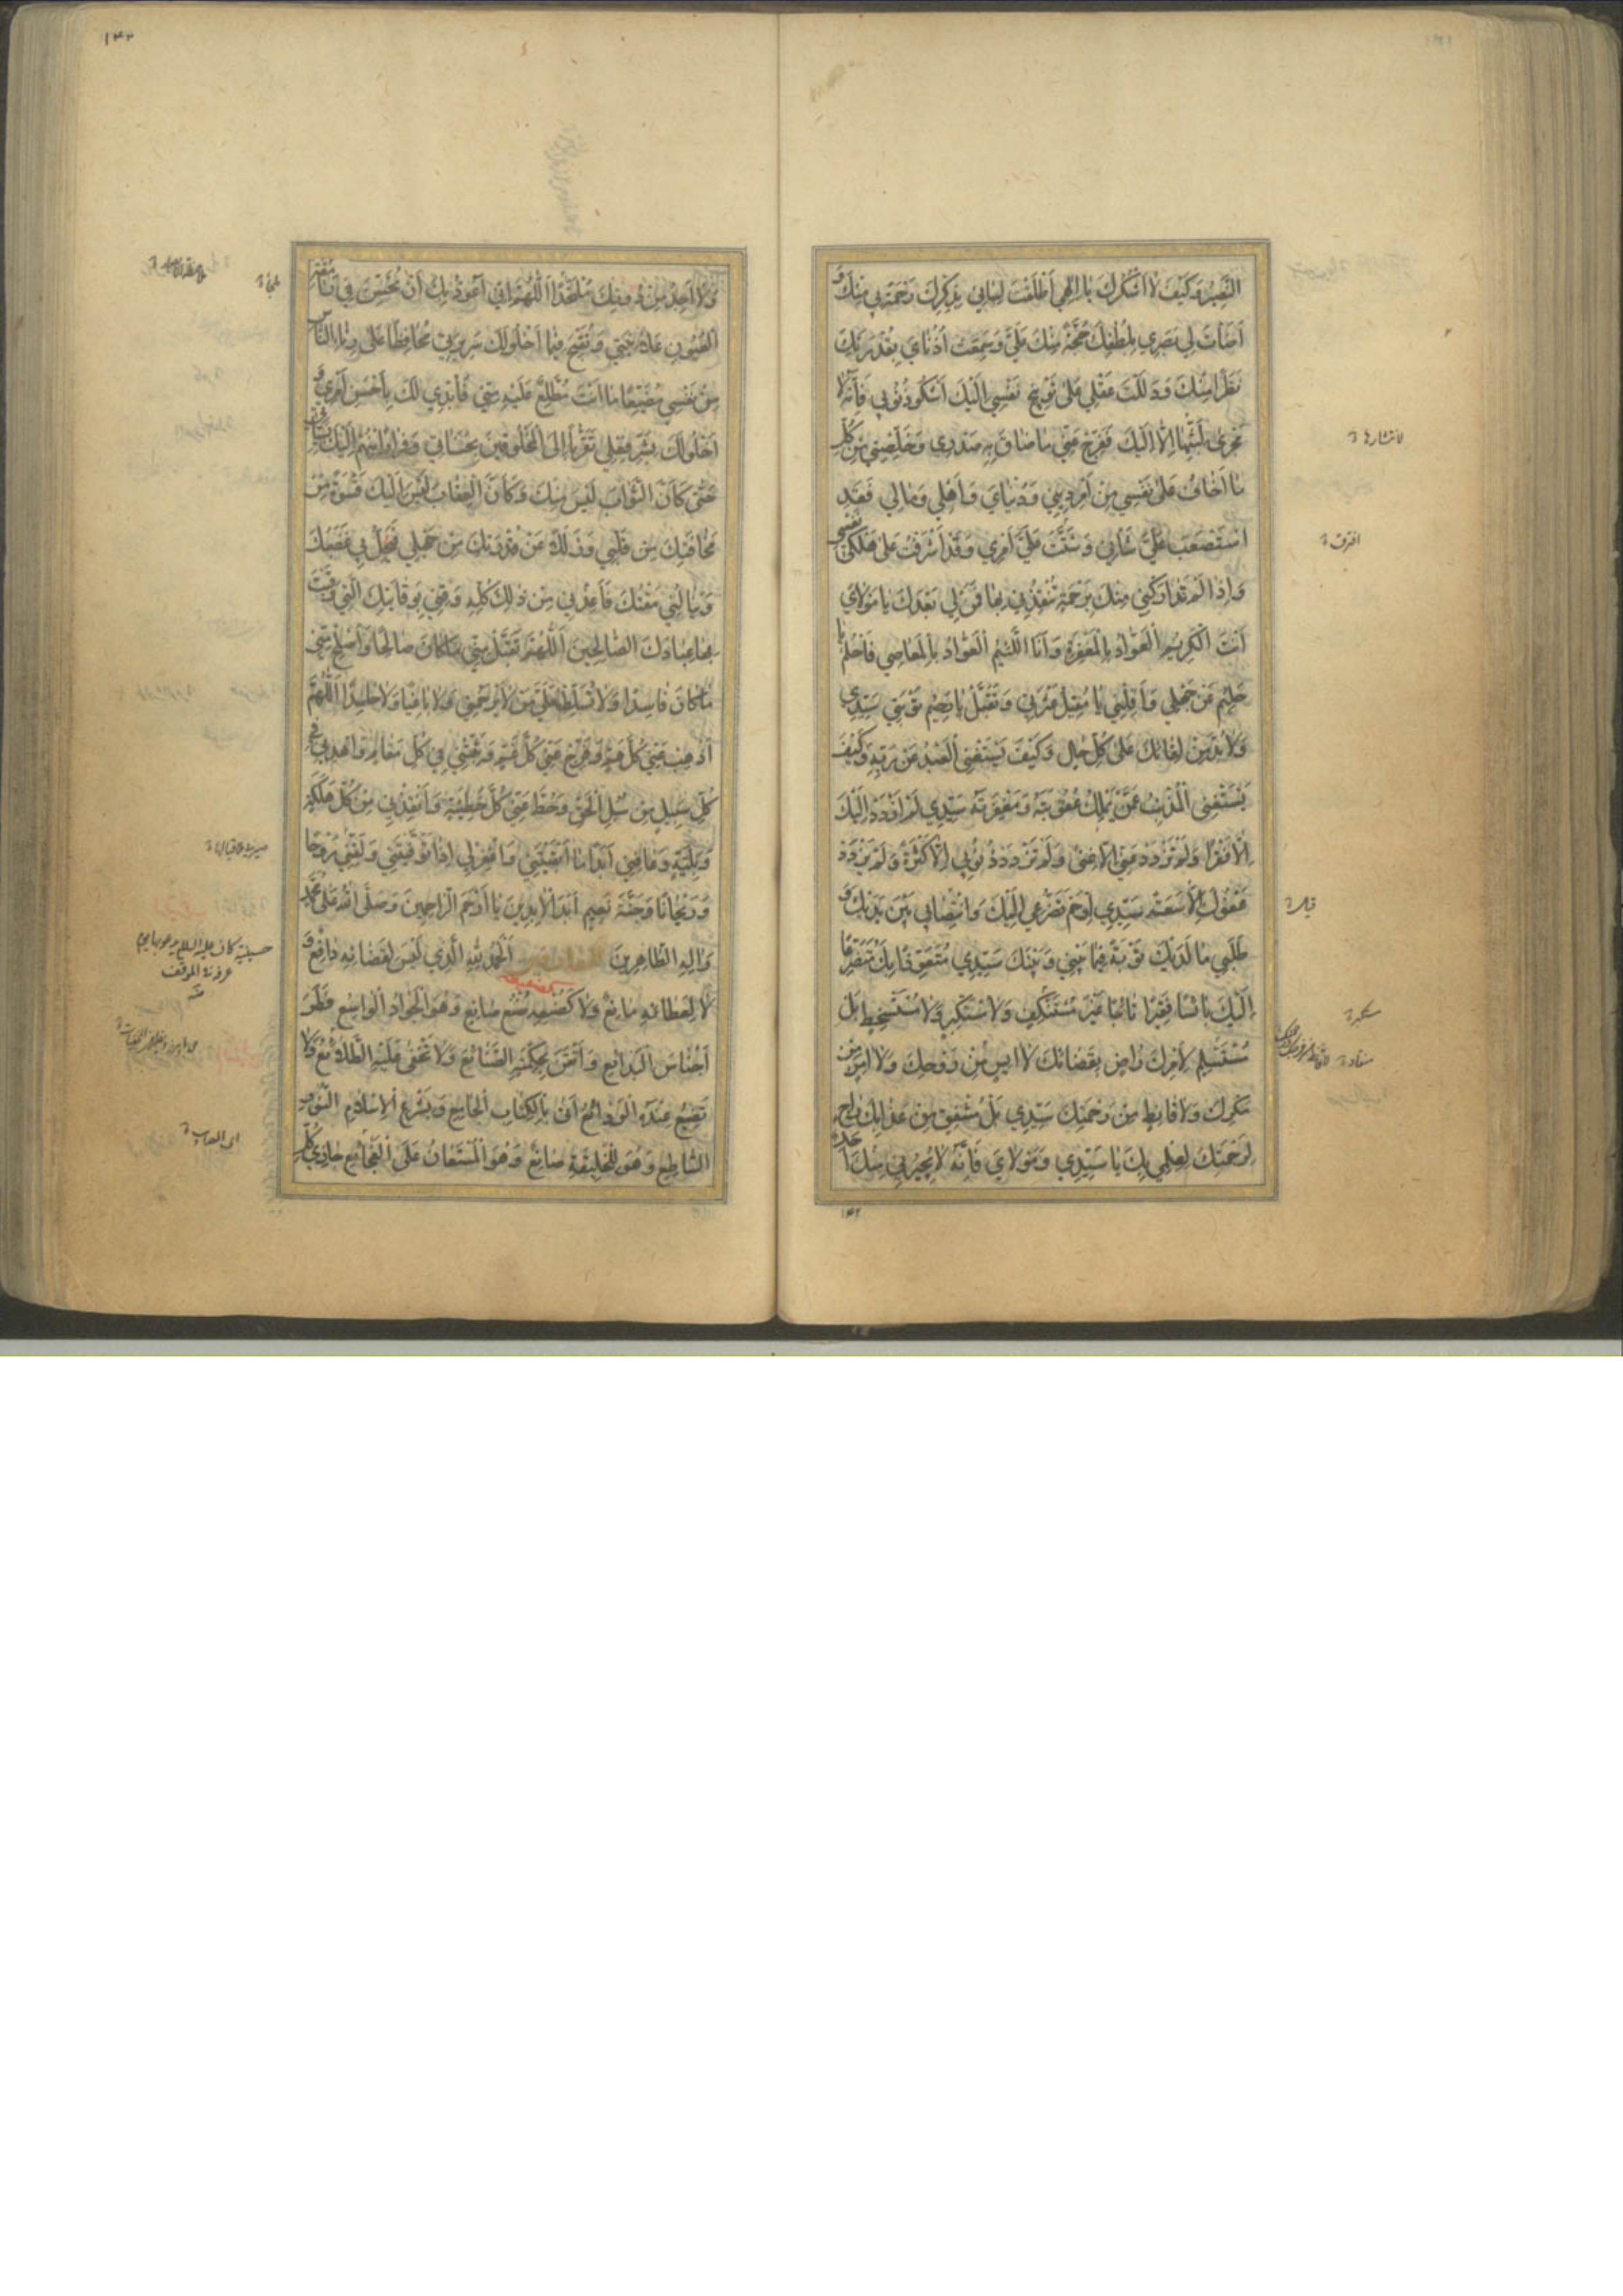 النَّصِيرُ وَكَيْفَ لَا أَشْكُرُكَ يَا إِلٰهِي أَطْلَقْتَ لِسَانِي بِذِكْرِكَ رَحْمَةً لِي مِنْكَ وَ
أَضَأْتَ لِي بَصَرِي بِلُطْفِكَ حُجَّةً مِنْكَ عَلَيَّ وَسَمِعَتْ أُذُنَايَ بِقُدْرَتِكَ
نَظَرًا مِنْكَ وَدَلَلْتَ عَقْلِي عَلَى تَوْبِيخِ نَفْسِي إِلَيْكَ أَشْكُو ذُنُوبِي فَإِنَّهُ لَا
مَجْرَى لِبَثِّهَا إِلَّا إِلَيْكَ فَفَرِّجْ عَنِّي مَا ضَاقَ بِهِ صَدْرِي وَخَلِّصْنِي مِنْ كُلِّ
مَا أَخَافُ عَلَى نَفْسِي مِنْ أَمْرِ دِينِي وَدُنْيَايَ وَأَهْلِي وَمَالِي فَقَدِ
اسْتَصْعَبَ عَلَيَّ شَأْنِي وَشُتِّتَ عَلَيَّ أَمْرِي وَقَدْ أَشْرَفْتُ عَلَى هَلَكَتِي نَفْسِي
وَإِذَا لَمْ تَدَارَكْنِي مِنْكَ بِرَحْمَةٍ تُنْقِذُنِي بِهَا فَمَنْ لِي بَعْدَكَ يَا مَوْلَايَ
أَنْتَ الْكَرِيمُ الْعَوَّادُ بِالْمَغْفِرَةِ وَأَنَا اللَّئِيمُ الْعَوَّادُ بِالْمَعَاصِي فَاحْلُمْ يَا
حَلِيمُ عَنْ جَهْلِي وَأَقِلْنِي يَا مُقِيلُ عَثْرَتِي وَتَقَبَّلْ يَا رَحِيمُ تَوْبَتِي سَيِّدِي
وَلَا بُدَّ مِنْ لِقَائِكَ عَلَى كُلِّ حَالٍ وَكَيْفَ يَسْتَغْنِي الْعَبْدُ عَنْ رَبِّهِ وَكَيْفَ
يَسْتَغْنِي الْمُذْنِبُ عَمَّنْ يَمْلِكُ عُقُوبَتَهُ وَمَغْفِرَتَهُ سَيِّدِي لَمْ أَزْدَدْ إِلَيْكَ
إِلَّا فَقْرًا وَلَمْ تَزْدَدْ عَنِّي إِلَّا غِنًى وَلَمْ تَزْدَدْ ذُنُوبِي إِلَّا كَثْرَةً وَلَمْ يَزْدَدْ
عَفْوُكَ إِلَّا سَعَةً سَيِّدِي ارْحَمْ تَضَرُّعِي إِلَيْكَ وَانْتِصَابِي بَيْنَ يَدَيْكَ وَ
طَلَبِي مَا لَدَيْكَ تَوْبَةً فِيمَا بَيْنِي وَبَيْنَكَ سَيِّدِي مُتَعَوِّذًا بِكَ مُتَضَرِّعًا
إِلَيْكَ بَائِسًا فَقِيرًا تَائِبًا غَيْرَ مُسْتَنْكِفٍ وَلَا مُسْتَكْبِرٍ وَلَا مُسْتَسْخِطٍ بَلْ
مُسْتَسْلِمٌ لِأَمْرِكَ رَاضٍ بِقَضَائِكَ لَا آيِسٌ مِنْ رَوْحِكَ وَلَا آمِنٌ مِنْ
مَكْرِكَ وَلَا قَانِطٌ مِنْ رَحْمَتِكَ سَيِّدِي بَلْ مُشْفِقٌ مِنْ عَذَابِكَ رَاجٍ
لِرَحْمَتِكَ لِعِلْمِي بِكَ يَا سَيِّدِي وَمَوْلَايَ فَإِنَّهُ لَا يُجِيرُنِي مِنْكَ أَحَدٌ
لانتشارها
۱۴۲
۱۴۲
وَلَا أَجِدُ مِنْ دُونِكَ مُلْتَحَدًا اللَّهُمَّ إِنِّي أَعُوذُ بِكَ أَنْ تُحَسِّنَ فِي رَامِقَةِ
الْعُيُونِ عَلَانِيَتِي وَتُقَبِّحَ فِيمَا أَخْلُو لَكَ سَرِيرَتِي مُحَافِظًا عَلَى رِئَاءِ النَّاسِ
مِنْ نَفْسِي مُضَيِّعًا مَا أَنْتَ مُطَّلِعٌ عَلَيْهِ مِنِّي فَأُبْدِي لَكَ بِأَحْسَنِ أَمْرِي وَ
أَخْلُو لَكَ بِشَرِّ فِعْلِي تَقَرُّبًا إِلَى الْمَخْلُوقِينَ بِحَسَنَاتِي وَفِرَارًا مِنْهُمْ إِلَيْكَ بِسَيِّئَاتِي
حَتَّى كَأَنَّ الثَّوَابَ لَيْسَ مِنْكَ وَكَأَنَّ الْعِقَابَ لَيْسَ إِلَيْكَ قَسْوَةً مِنْ
مَخَافَتِكَ مِنْ قَلْبِي وَزَلَلًا عَنْ قُدْرَتِكَ مِنْ جَهْلِي فَيَحِلَّ بِي غَضَبُكَ
وَيَنَالَنِي مَقْتُكَ فَأَعِذْنِي مِنْ ذٰلِكَ كُلِّهِ وَقِنِي بِوِقَايَتِكَ الَّتِي وَقَيْتَ
بِهَا عِبَادَكَ الصَّالِحِينَ اللَّهُمَّ تَقَبَّلْ مِنِّي مَا كَانَ صَالِحًا وَأَصْلِحْ مِنِّي
مَا كَانَ فَاسِدًا وَلَا تُسَلِّطْ عَلَيَّ مَنْ لَا يَرْحَمُنِي وَلَا بَاغِيًا وَلَا حَاسِدًا اللَّهُمَّ
أَذْهِبْ عَنِّي كُلَّ هَمٍّ وَفَرِّجْ عَنِّي كُلَّ غَمٍّ وَثَبِّتْنِي فِي كُلِّ مَقَامٍ وَاهْدِنِي فِي
كُلِّ سَبِيلٍ مِنْ سُبُلِ الْحَقِّ وَحُطَّ عَنِّي كُلَّ خَطِيئَةٍ وَأَنْقِذْنِي مِنْ كُلِّ هَلَكَةٍ
وَبَلِيَّةٍ وَعَافِنِي أَبَدًا مَا أَبْقَيْتَنِي وَاغْفِرْ لِي إِذَا تَوَفَّيْتَنِي وَلَقِّنِي رَوْحًا
وَرَيْحَانًا وَجَنَّةَ نَعِيمٍ أَبَدَ الْآبِدِينَ يَا أَرْحَمَ الرَّاحِمِينَ وَصَلَّى اللهُ عَلَى مُحَمَّدٍ
وَآلِهِ الطَّاهِرِينَ الْحَمْدُ لِلّٰهِ الَّذِي لَيْسَ لِقَضَائِهِ دَافِعٌ وَ
لَا لِعَطَائِهِ مَانِعٌ وَلَا كَصُنْعِهِ صُنْعُ صَانِعٍ وَهُوَ الْجَوَادُ الْوَاسِعُ فَطَرَ
أَجْنَاسَ الْبَدَائِعِ وَأَتْقَنَ بِحِكْمَتِهِ الصَّنَائِعَ وَلَا تَخْفَى عَلَيْهِ الطَّلَائِعُ وَلَا
تَضِيعُ عِنْدَهُ الْوَدَائِعُ أَتَى بِالْكِتَابِ الْجَامِعِ وَبِشَرْعِ الْإِسْلَامِ النُّورِ
السَّاطِعِ وَهُوَ لِلْخَلِيقَةِ صَانِعٌ وَهُوَ الْمُسْتَعَانُ عَلَى الْفَجَائِعِ جَازِي كُلِّ